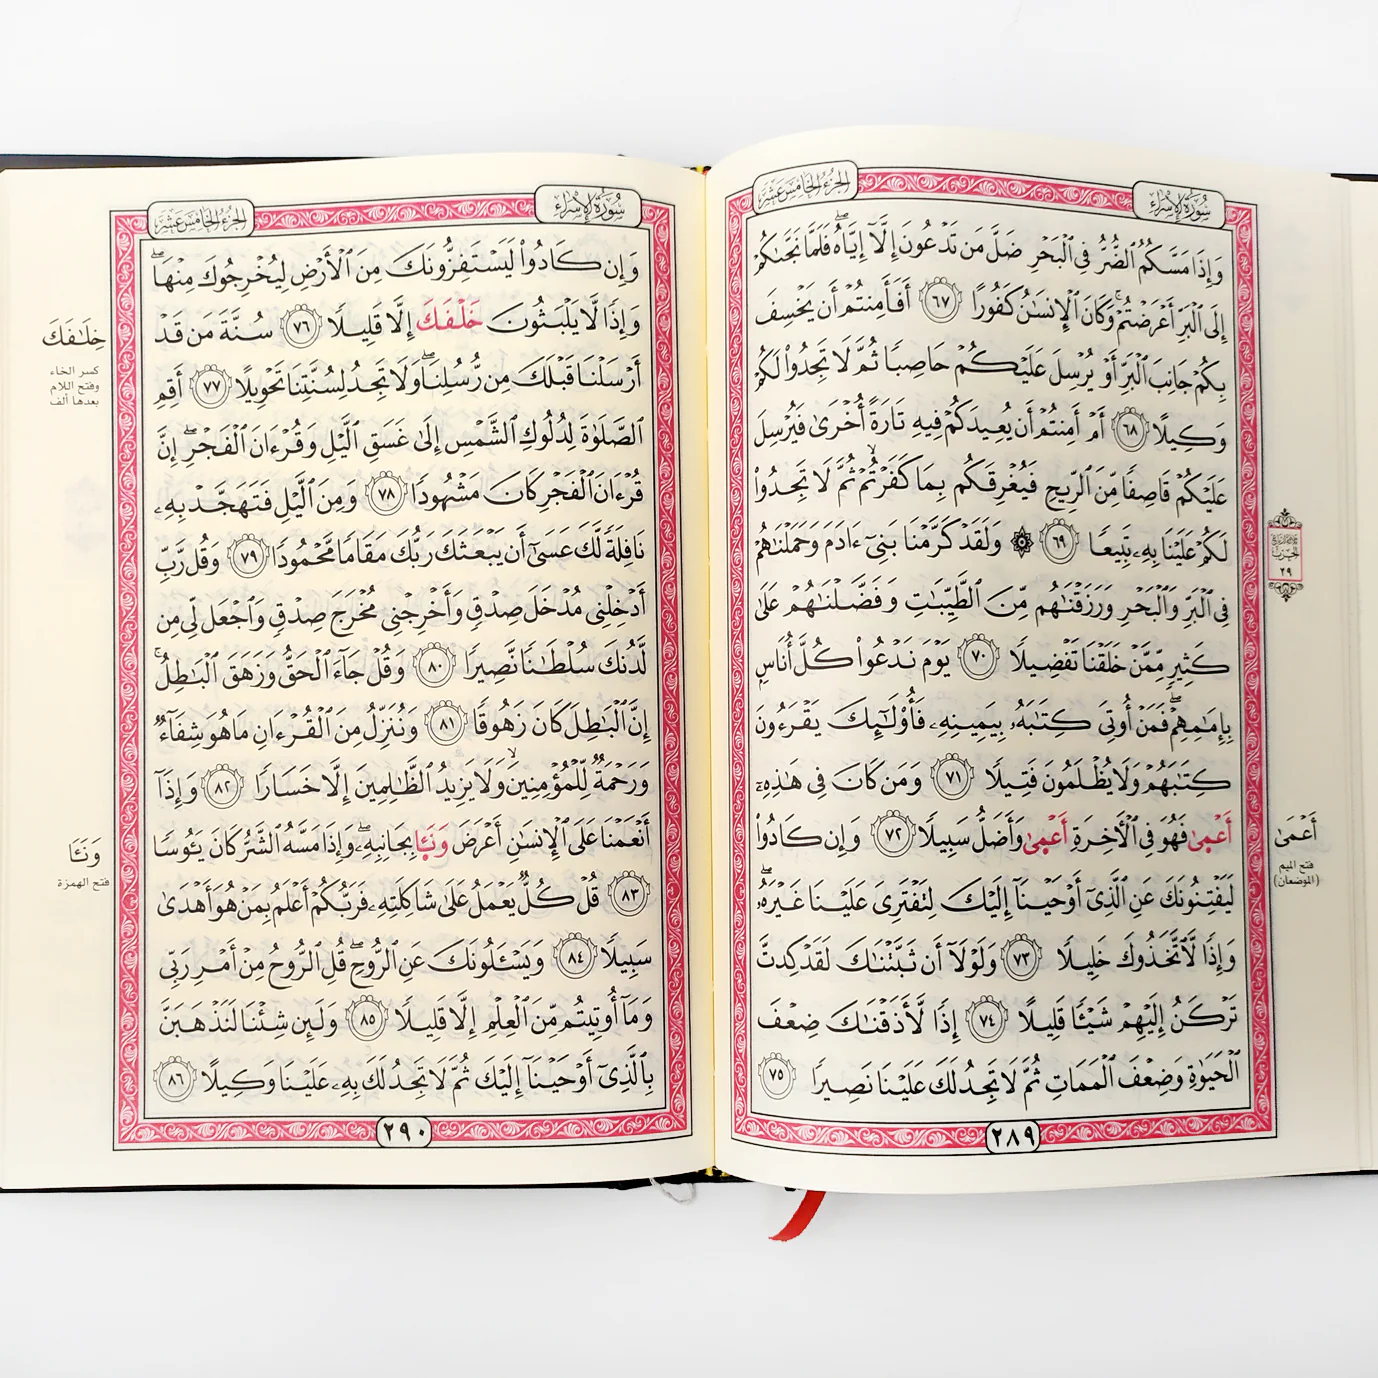 سُورَةُ الإِسْرَاءِ
الجُزْءُ الخَامِسَ عَشَرَ
وَإِذَا مَسَّكُمُ ٱلضُّرُّ فِي ٱلْبَحْرِ ضَلَّ مَن تَدْعُونَ إِلَّآ إِيَّاهُ ۖ فَلَمَّا نَجَّىٰكُمْ
إِلَى ٱلْبَرِّ أَعْرَضْتُمْ ۚ وَكَانَ ٱلْإِنسَٰنُ كَفُورًا ٦٧ أَفَأَمِنتُمْ أَن يَخْسِفَ
بِكُمْ جَانِبَ ٱلْبَرِّ أَوْ يُرْسِلَ عَلَيْكُمْ حَاصِبًا ثُمَّ لَا تَجِدُوا۟ لَكُمْ
وَكِيلًا ٦٨ أَمْ أَمِنتُمْ أَن يُعِيدَكُمْ فِيهِ تَارَةً أُخْرَىٰ فَيُرْسِلَ
عَلَيْكُمْ قَاصِفًا مِّنَ ٱلرِّيحِ فَيُغْرِقَكُم بِمَا كَفَرْتُمْ ۙ ثُمَّ لَا تَجِدُوا۟
لَكُمْ عَلَيْنَا بِهِۦ تَبِيعًا ٦٩ ۞ وَلَقَدْ كَرَّمْنَا بَنِيٓ ءَادَمَ وَحَمَلْنَٰهُمْ
فِي ٱلْبَرِّ وَٱلْبَحْرِ وَرَزَقْنَٰهُم مِّنَ ٱلطَّيِّبَٰتِ وَفَضَّلْنَٰهُمْ عَلَىٰ
كَثِيرٍ مِّمَّنْ خَلَقْنَا تَفْضِيلًا ٧٠ يَوْمَ نَدْعُوا۟ كُلَّ أُنَاسٍۭ
بِإِمَٰمِهِمْ ۖ فَمَنْ أُوتِيَ كِتَٰبَهُۥ بِيَمِينِهِۦ فَأُو۟لَٰٓئِكَ يَقْرَءُونَ
كِتَٰبَهُمْ وَلَا يُظْلَمُونَ فَتِيلًا ٧١ وَمَن كَانَ فِي هَٰذِهِۦٓ
أَعْمَىٰ فَهُوَ فِي ٱلْأَخِرَةِ أَعْمَىٰ وَأَضَلُّ سَبِيلًا ٧٢ وَإِن كَادُوا۟
لَيَفْتِنُونَكَ عَنِ ٱلَّذِيٓ أَوْحَيْنَآ إِلَيْكَ لِتَفْتَرِيَ عَلَيْنَا غَيْرَهُۥ ۖ
وَإِذًا لَّٱتَّخَذُوكَ خَلِيلًا ٧٣ وَلَوْلَآ أَن ثَبَّتْنَٰكَ لَقَدْ كِدتَّ
تَرْكَنُ إِلَيْهِمْ شَيْـًٔا قَلِيلًا ٧٤ إِذًا لَّأَذَقْنَٰكَ ضِعْفَ
ٱلْحَيَوٰةِ وَضِعْفَ ٱلْمَمَاتِ ثُمَّ لَا تَجِدُ لَكَ عَلَيْنَا نَصِيرًا ٧٥
٢٨٩
الحزب
٢٩
أَعْمَىٰ
فتح الميم
(الموضعان)
سُورَةُ الإِسْرَاءِ
الجُزْءُ الخَامِسَ عَشَرَ
وَإِن كَادُوا۟ لَيَسْتَفِزُّونَكَ مِنَ ٱلْأَرْضِ لِيُخْرِجُوكَ مِنْهَا ۖ
وَإِذًا لَّا يَلْبَثُونَ خَلْفَكَ إِلَّا قَلِيلًا ٧٦ سُنَّةَ مَن قَدْ
أَرْسَلْنَا قَبْلَكَ مِن رُّسُلِنَا ۖ وَلَا تَجِدُ لِسُنَّتِنَا تَحْوِيلًا ٧٧ أَقِمِ
ٱلصَّلَوٰةَ لِدُلُوكِ ٱلشَّمْسِ إِلَىٰ غَسَقِ ٱلَّيْلِ وَقُرْءَانَ ٱلْفَجْرِ ۖ إِنَّ
قُرْءَانَ ٱلْفَجْرِ كَانَ مَشْهُودًا ٧٨ وَمِنَ ٱلَّيْلِ فَتَهَجَّدْ بِهِۦ
نَافِلَةً لَّكَ عَسَىٰٓ أَن يَبْعَثَكَ رَبُّكَ مَقَامًا مَّحْمُودًا ٧٩ وَقُل رَّبِّ
أَدْخِلْنِي مُدْخَلَ صِدْقٍ وَأَخْرِجْنِي مُخْرَجَ صِدْقٍ وَٱجْعَل لِّي مِن
لَّدُنكَ سُلْطَٰنًا نَّصِيرًا ٨٠ وَقُلْ جَآءَ ٱلْحَقُّ وَزَهَقَ ٱلْبَٰطِلُ ۚ
إِنَّ ٱلْبَٰطِلَ كَانَ زَهُوقًا ٨١ وَنُنَزِّلُ مِنَ ٱلْقُرْءَانِ مَا هُوَ شِفَآءٌ
وَرَحْمَةٌ لِّلْمُؤْمِنِينَ ۙ وَلَا يَزِيدُ ٱلظَّٰلِمِينَ إِلَّا خَسَارًا ٨٢ وَإِذَآ
أَنْعَمْنَا عَلَى ٱلْإِنسَٰنِ أَعْرَضَ وَنَـَٔا بِجَانِبِهِۦ ۖ وَإِذَا مَسَّهُ ٱلشَّرُّ كَانَ يَـُٔوسًا
٨٣ قُلْ كُلٌّ يَعْمَلُ عَلَىٰ شَاكِلَتِهِۦ فَرَبُّكُمْ أَعْلَمُ بِمَنْ هُوَ أَهْدَىٰ
سَبِيلًا ٨٤ وَيَسْـَٔلُونَكَ عَنِ ٱلرُّوحِ ۖ قُلِ ٱلرُّوحُ مِنْ أَمْرِ رَبِّي
وَمَآ أُوتِيتُم مِّنَ ٱلْعِلْمِ إِلَّا قَلِيلًا ٨٥ وَلَئِن شِئْنَا لَنَذْهَبَنَّ
بِٱلَّذِيٓ أَوْحَيْنَآ إِلَيْكَ ثُمَّ لَا تَجِدُ لَكَ بِهِۦ عَلَيْنَا وَكِيلًا ٨٦
٢٩٠
خِلَٰفَكَ
كسر الخاء
وفتح اللام
بعدها ألف
وَنَـَٔا
فتح الهمزة